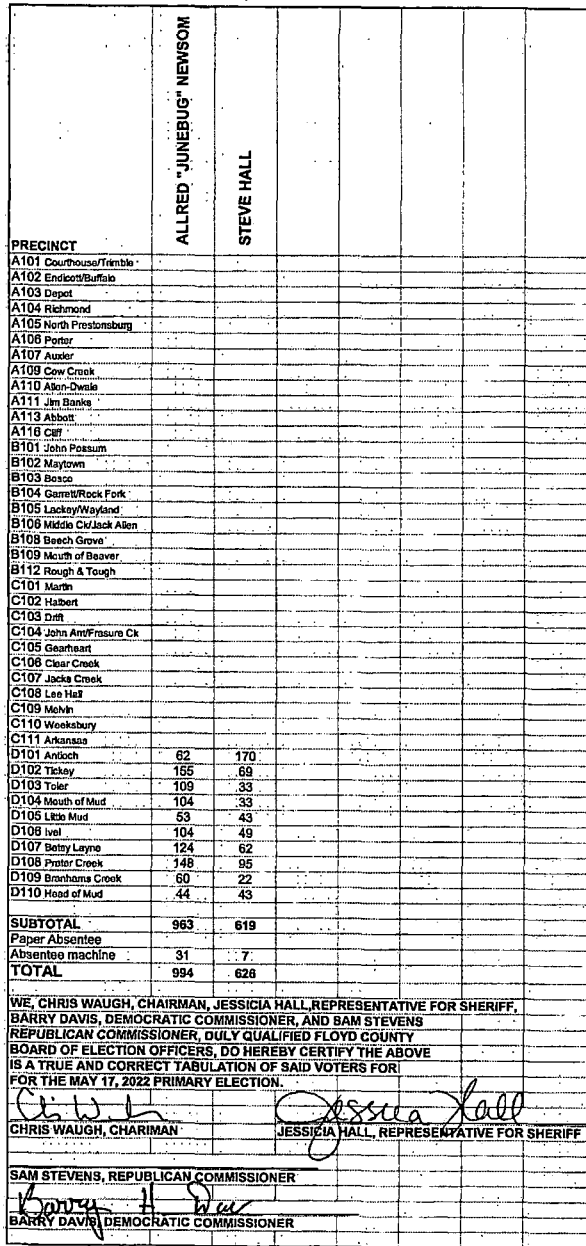 ALLRED "JUNEBUG" NEWSOM
STEVE HALL
PRECINCT
A101 Courthouse/Trimble
A102 Endicott/Buffalo
A103 Depot
A104 Richmond
A105 North Prestonsburg
A106 Porter
A107 Auxier
A109 Cow Creek
A110 Allen-Dwale
A111 Jim Banks
A113 Abbott
A116 Cliff
B101 John Possum
B102 Maytown
B103 Bosco
B104 Garrett/Rock Fork
B105 Lackey/Wayland
B106 Middle Ck/Jack Allen
B108 Beech Grove
B109 Mouth of Beaver
B112 Rough & Tough
C101 Martin
C102 Halbert
C103 Drift
C104 John Ant/Frasure Ck
C105 Gearheart
C106 Clear Creek
C107 Jacks Creek
C108 Lee Hall
C109 Melvin
C110 Weeksbury
C111 Arkansas
D101 Antioch 62 170
D102 Tickey 155 69
D103 Toler 109 33
D104 Mouth of Mud 104 33
D105 Little Mud 53 43
D106 Ivel 104 49
D107 Betsy Layne 124 62
D108 Prater Creek 148 95
D109 Branhams Creek 60 22
D110 Head of Mud 44 43
SUBTOTAL 963 619
Paper Absentee
Absentee machine 31 7
TOTAL 994 626
WE, CHRIS WAUGH, CHAIRMAN, JESSICIA HALL,REPRESENTATIVE FOR SHERIFF,
BARRY DAVIS, DEMOCRATIC COMMISSIONER, AND SAM STEVENS
REPUBLICAN COMMISSIONER, DULY QUALIFIED FLOYD COUNTY
BOARD OF ELECTION OFFICERS, DO HEREBY CERTIFY THE ABOVE
IS A TRUE AND CORRECT TABULATION OF SAID VOTERS FOR
FOR THE MAY 17, 2022 PRIMARY ELECTION.
Jessica Hall
CHRIS WAUGH, CHARIMAN JESSICIA HALL, REPRESENTATIVE FOR SHERIFF
SAM STEVENS, REPUBLICAN COMMISSIONER
Barry H
BARRY DAVIS, DEMOCRATIC COMMISSIONER